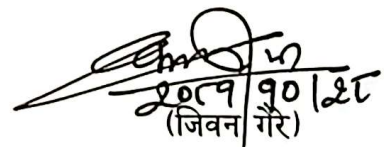 २०८१/१०/२८
(जिवन गैरे)